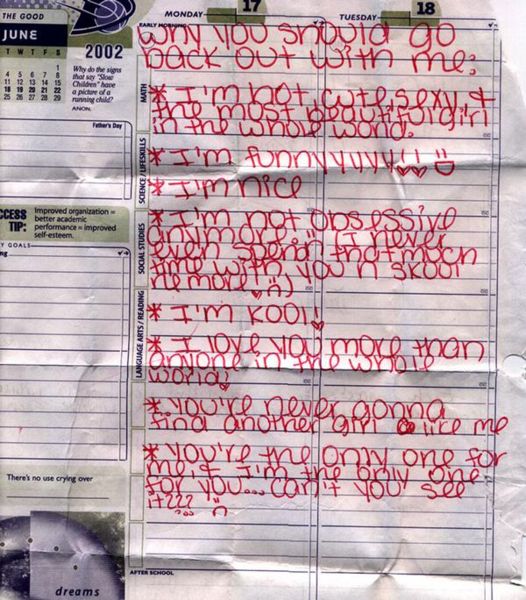 THE GOOD
JUNE
2002
T W T F S
1
4 5 6 7 8
11 12 13 14 15
18 19 20 21 22
25 26 27 28 29
Why do the signs
that say "Slow
Children" have
a picture of a
running child?
ANON.
Father's Day
CCESS
TIP:
Improved organization =
better academic
performance = improved
self-esteem.
Y GOALS
There's no use crying over
dreams
MONDAY 17
TUESDAY 18
EARLY MORNING
MATH
SCIENCE / LIFESKILLS
SOCIAL STUDIES
LANGUAGE ARTS / READING
AFTER SCHOOL
Why you should go
back out with me:
* I'm not cute, sexy, &
the most beautiful girl
in the whole world.
* I'm funnyyuyy!!
* I'm nice
* I'm not obsessive
anymore.. (I never
even spend that much
time with you n skool
ne more! :))
* I'm KOOl!
* I love you more than
anyone in the whole
world!
* You're never gonna
find another girl like me
* You're the only one for
me, & I'm the only one
for you... can't you see
it???